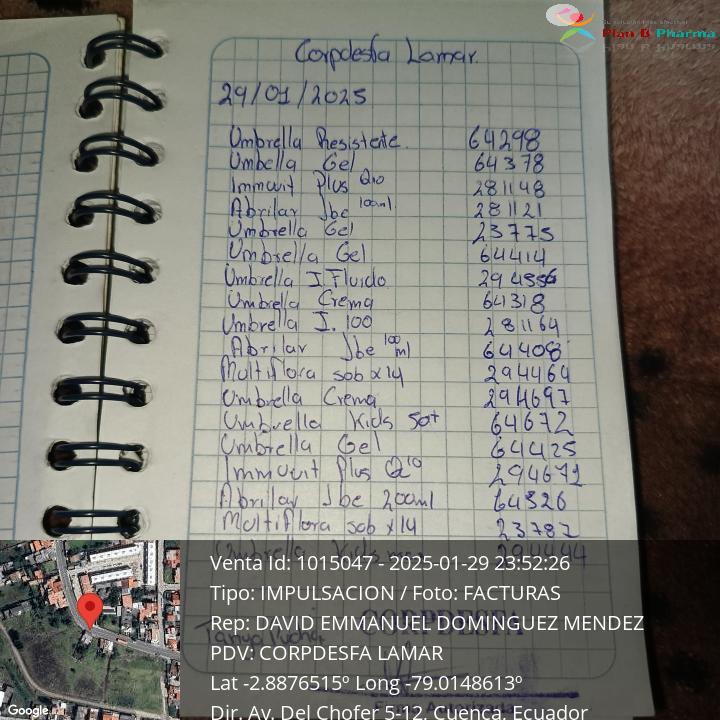 Plan B Pharma
Corpdesfa Lamar.
29/01/2025
Umbrella Resistente. 64298
Umbella Gel 64378
Immuvit Plus Q10 281148
Abrilar Jbe 100ml. 281121
Umbrella Gel 23775
Umbrella Gel 64414
Umbrella I. Fluido
Umbrella Crema 64318
Umbrella I. 100 281164
Abrilar Jbe 100 ml 64408
Multiflora sob x14 294464
Umbrella Crema 294697
Umbrella Kids 50+ 64672
Umbrella Gel 64425
Immuvit Plus Q10 294671
Abrilar Jbe 200ml 64326
Multiflora sob x14 23782
Umbrella Kids 294444
Venta Id: 1015047 - 2025-01-29 23:52:26
Tipo: IMPULSACION / Foto: FACTURAS
Rep: DAVID EMMANUEL DOMINGUEZ MENDEZ
CORPDESFA
PDV: CORPDESFA LAMAR
Lat -2.8876515º Long -79.0148613º
Dir. Av. Del Chofer 5-12, Cuenca, Ecuador
Google